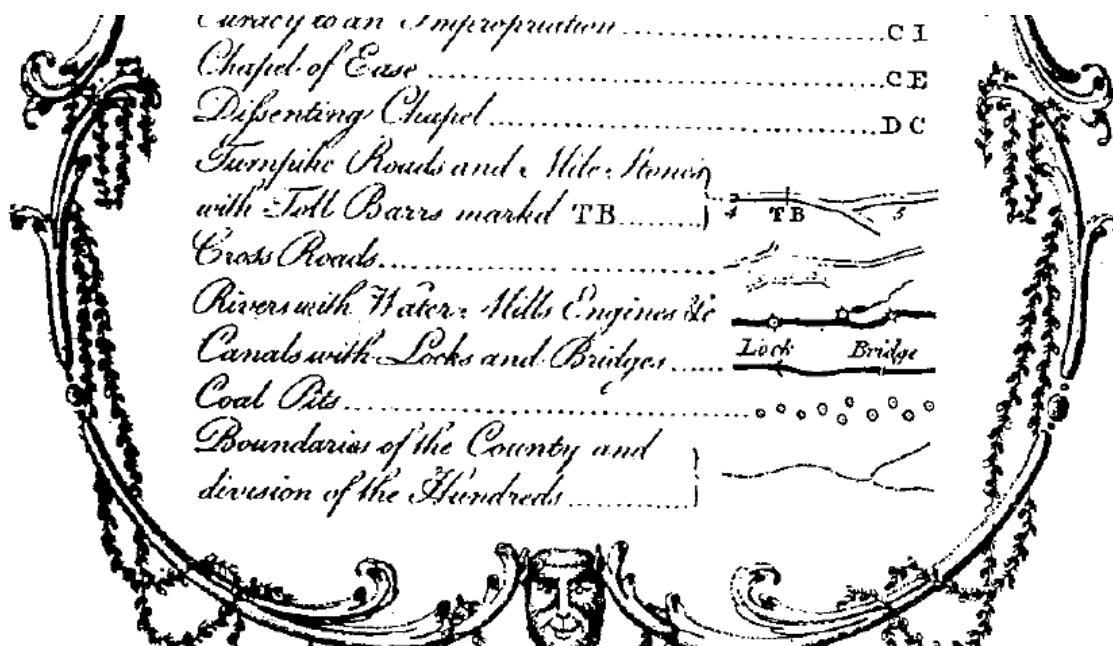 Curacy to an Impropriation C I
Chapel of Ease C E
Dissenting Chapel D C
Turnpike Roads and Mile Stones
with Toll Barrs markd TB 4 TB 5
Cross Roads
Rivers with Water Mills Engines &c
Canals with Locks and Bridges Lock Bridge
Coal Pits
Boundaries of the County and
division of the Hundreds